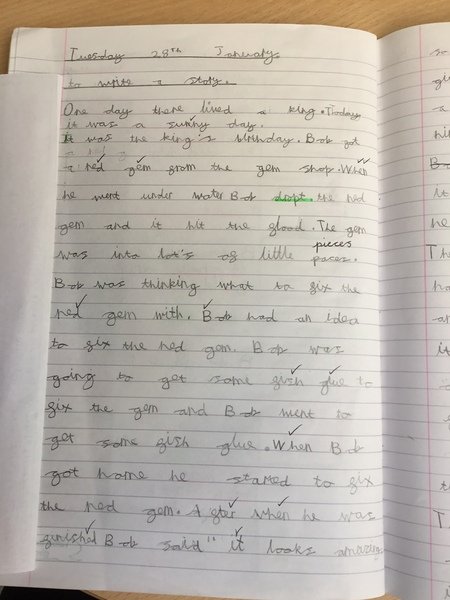 Tuesday 28TH January.
to write a story.
One day there lived a king. Today
it was a sunny day.
It was the king's birthday. Bob got
a red gem from the gem shop. When
he went under water Bob dropt the red
gem and it hit the glood. The gem
pieces
was into lot's of little paces.
Bob was thinking what to fix the
red gem with. Bob had an idea
to fix the red gem. Bob was
going to get some fish glue to
fix the gem and Bob went to
get some fish glue. When Bob
got home he started to fix
the red gem. After when he was
finishd Bob said" it looks amazing